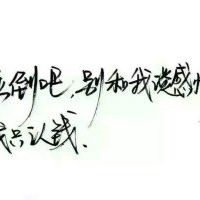 倒吧,别和我谈感
我只认钱.